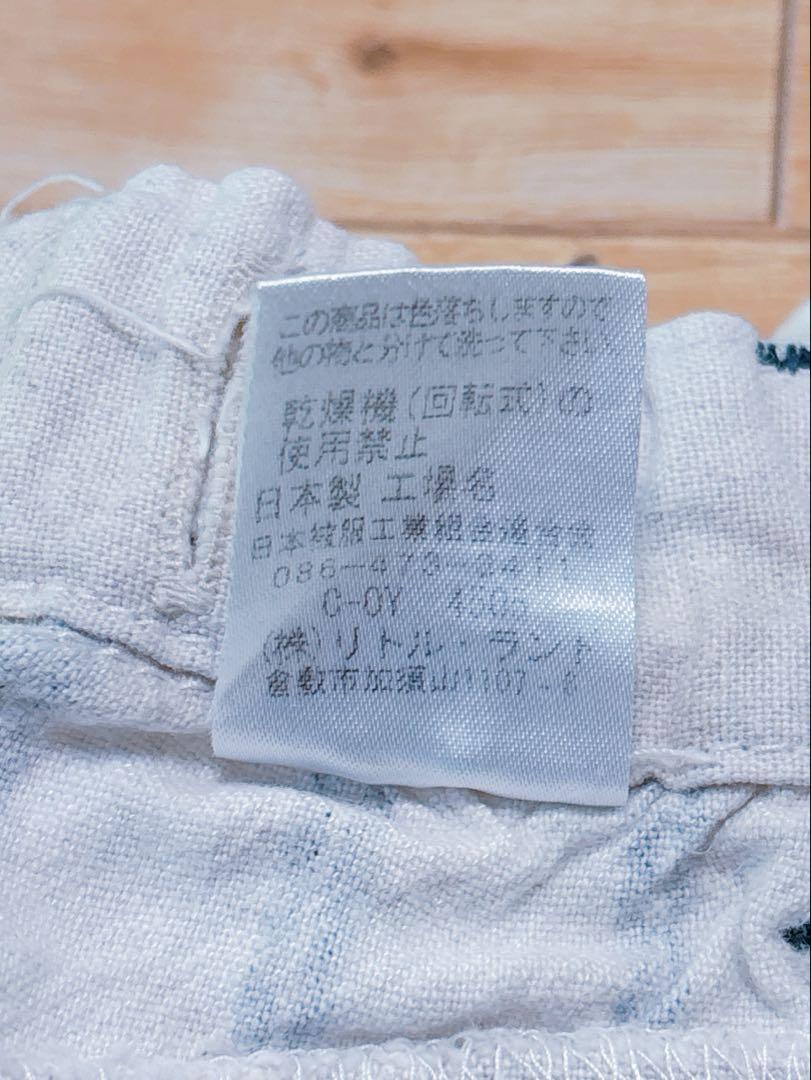 この商品は色落ちしますので
他の物と分けて洗って下さい
乾燥機(回転式)の
使用禁止
日本製 工場名
日本被服工業組合連合会
086-473-3411
C-OY 450
(株)リトル・ランド
倉敷市加須山1107-8